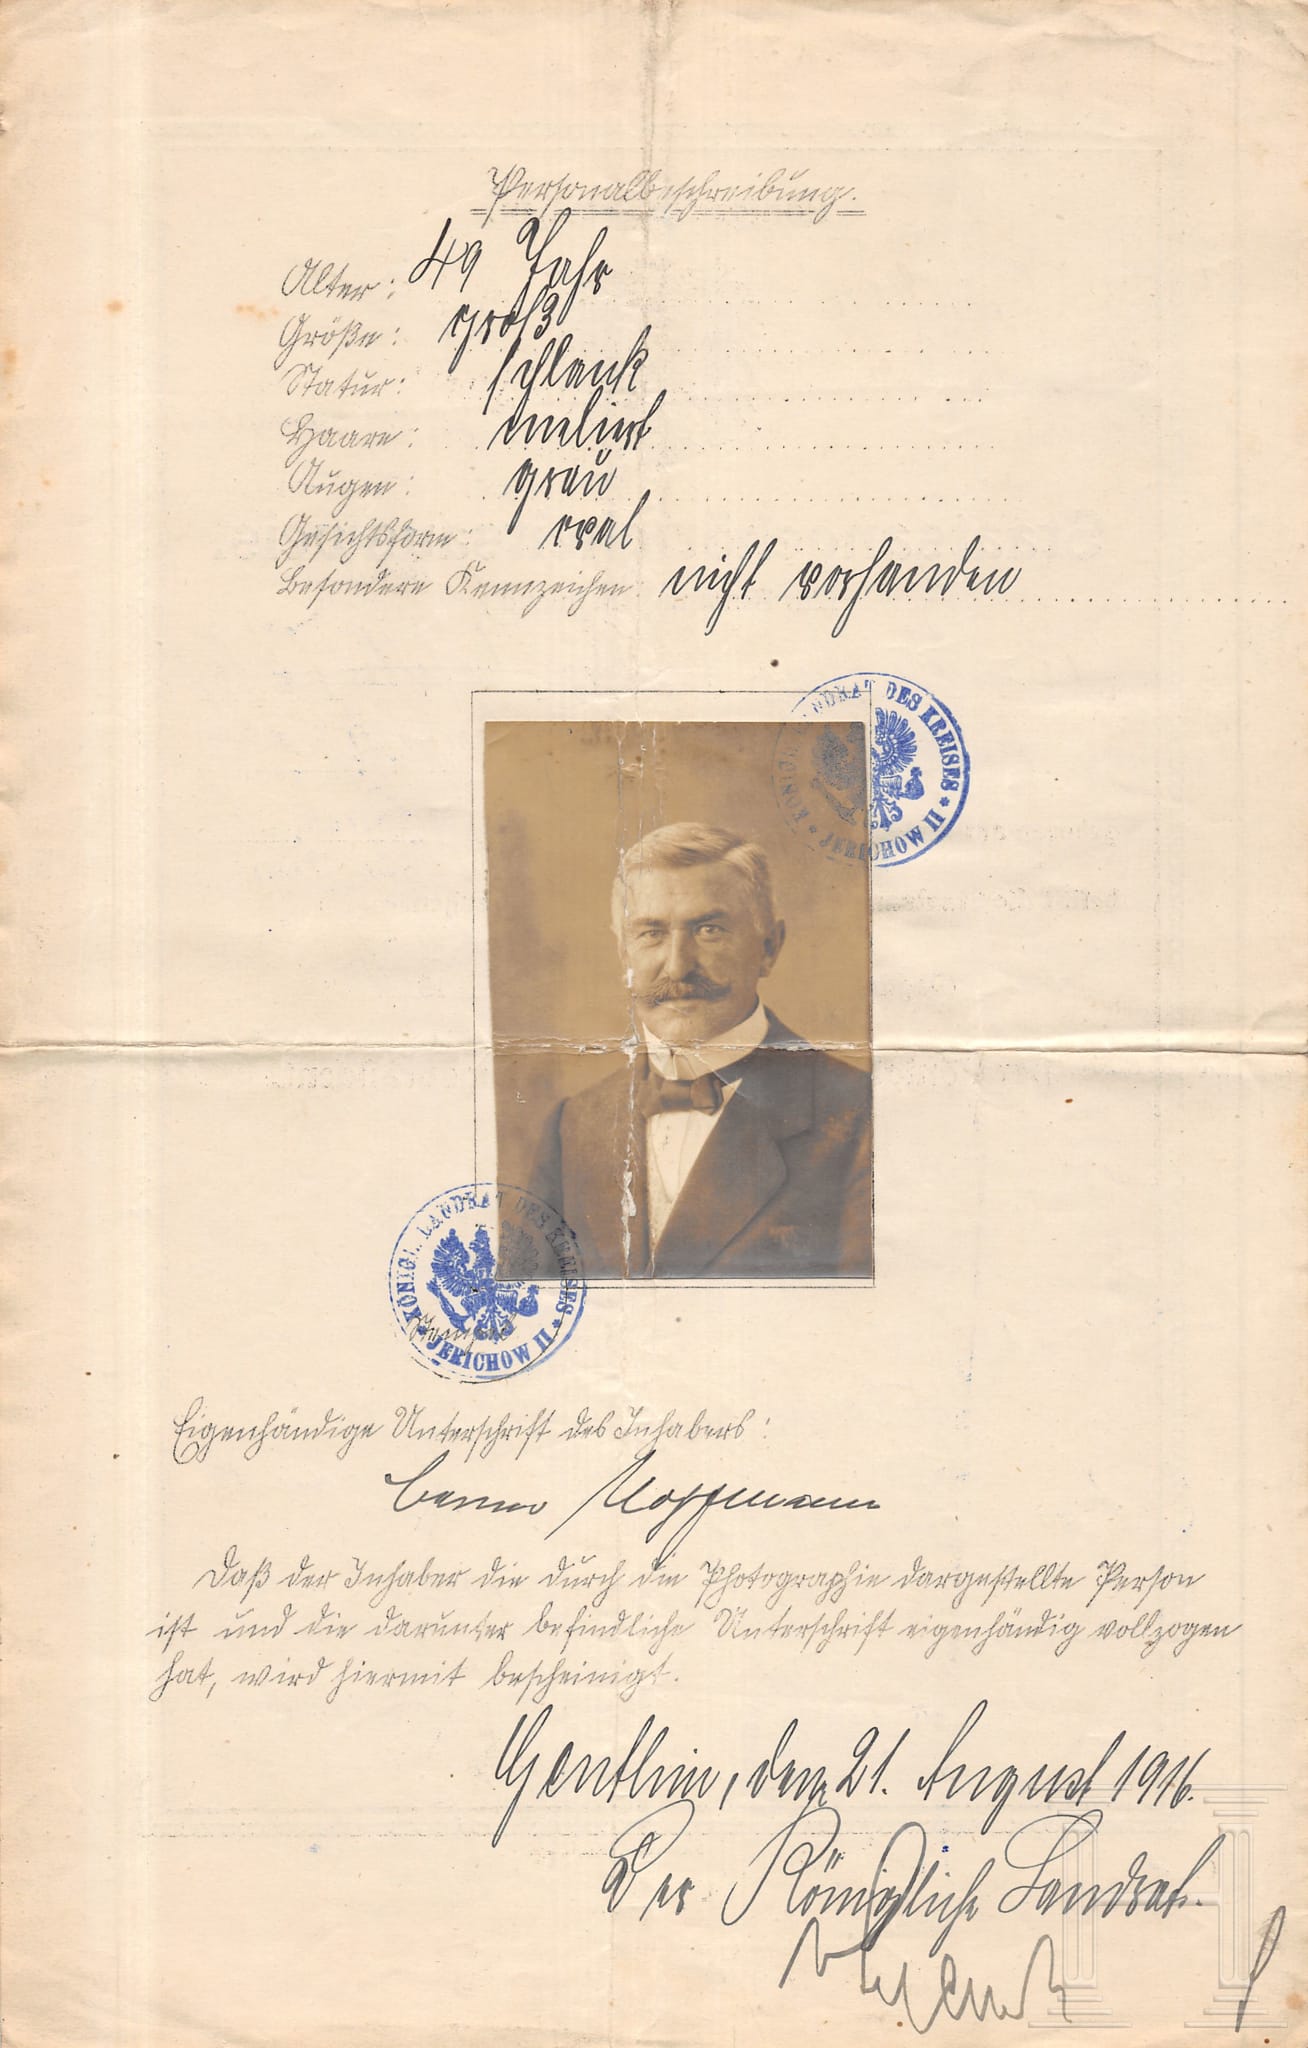 Personalbeschreibung.
Alter: 49 Jahr
Größe: groß
Statur: schlank
Haare: meliert
Augen: grau
Gesichtsform: oval
Besondere Kennzeichen: nicht vorhanden
KÖNIGL. LANDRAT DES KREISES * JERICHOW II *
KÖNIGL. LANDRAT DES KREISES * JERICHOW II *
Stempel
Eigenhändige Unterschrift des Inhabers:
Benno Hoffmann
Daß der Inhaber die durch die Photographie dargestellte Person
ist und die darunter befindliche Unterschrift eigenhändig vollzogen
hat, wird hiermit bescheinigt.
Genthin, den 21. August 1916.
Der Königliche Landrat.